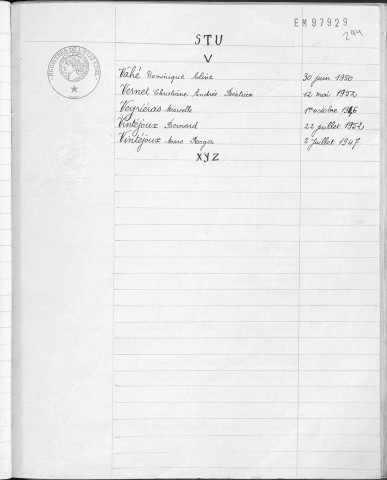 EM97929
294
STU
REGISTRES DE L'ETAT CIVIL
V
Vahé Dominique Aline 30 juin 1950
Vernet Christiane Andrée Béatrice 12 mai 1952
Veyriéras Marcelle 1er octobre 1946
Vintéjoux Bernard 22 juillet 1952
Vintéjoux Marc Roger 2 juillet 1947
XYZ